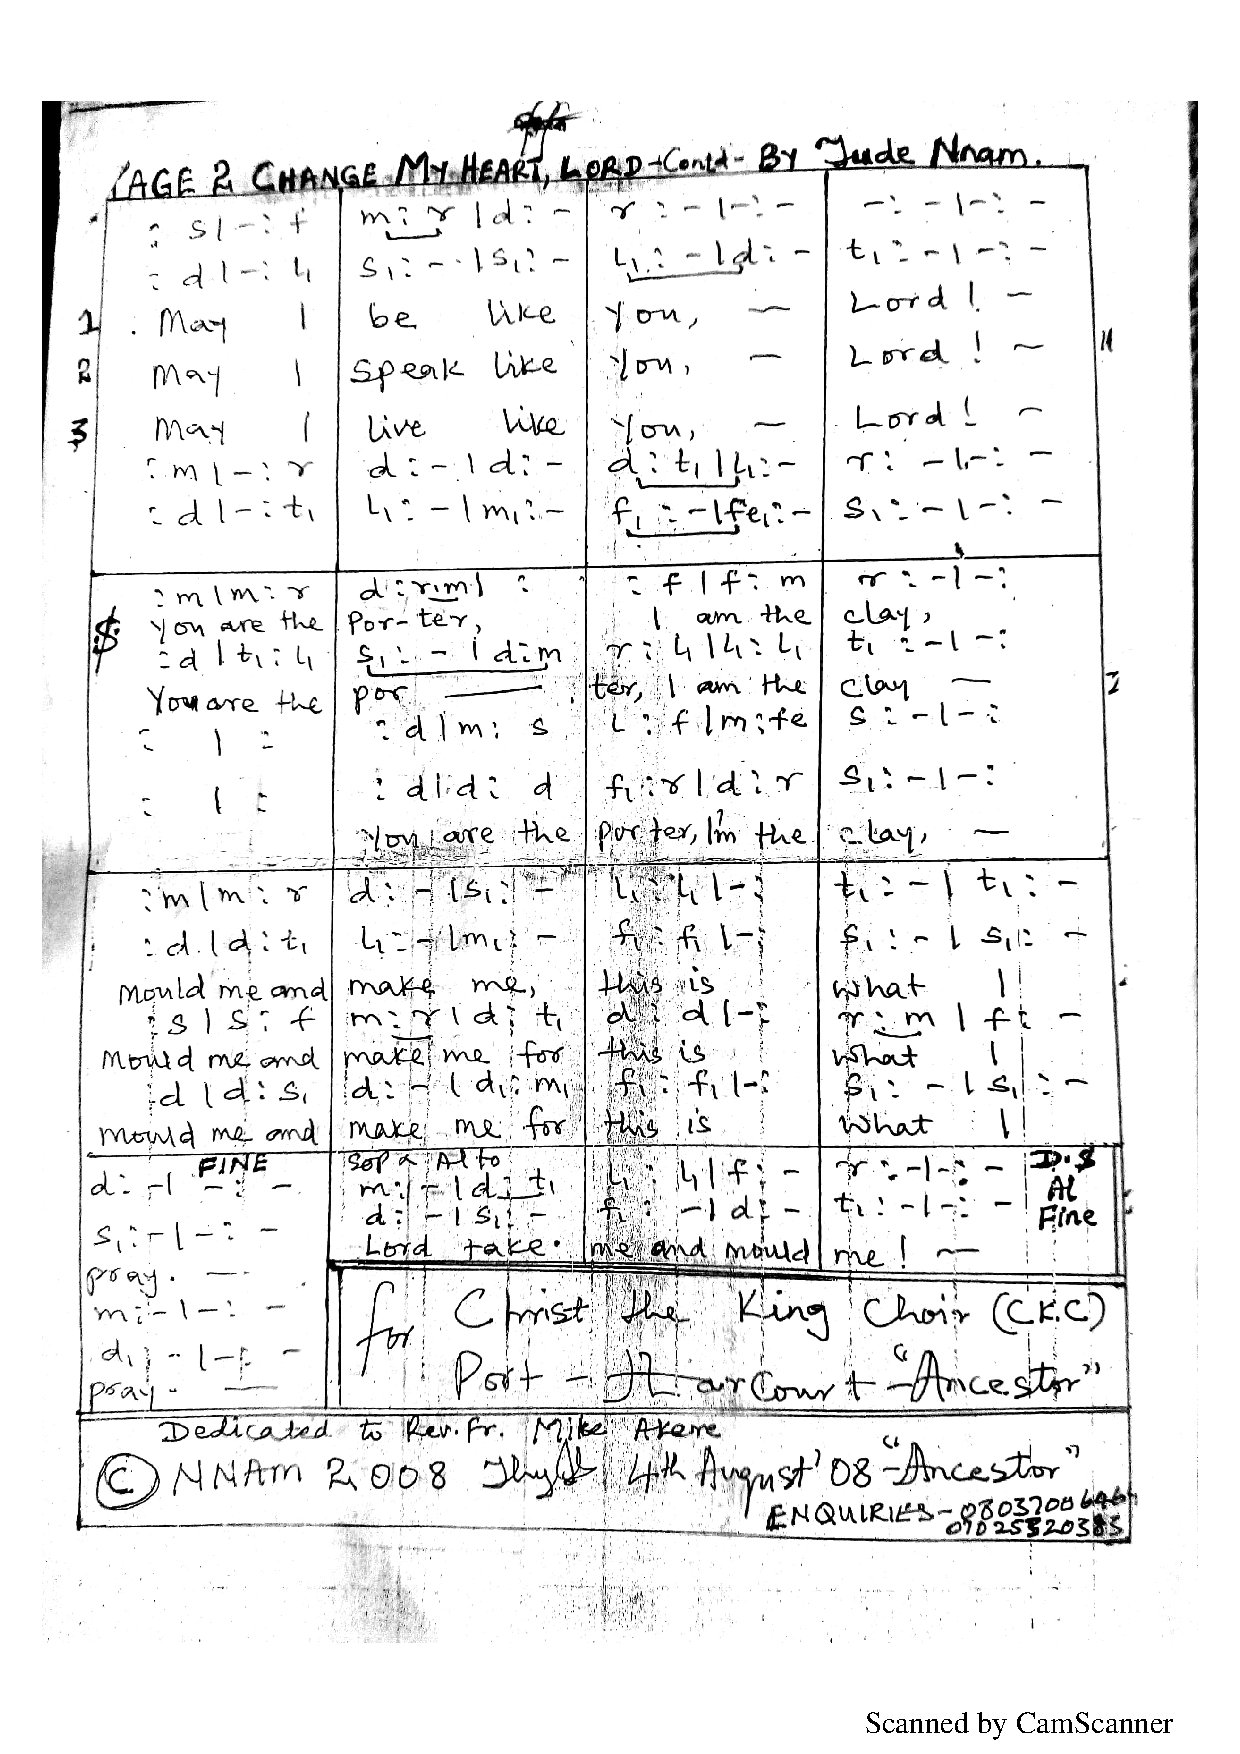 PAGE 2 CHANGE MY HEART, LORD - Contd - BY Jude Nnam.
: s | - : f   m : r | d : -   r : - | - : -   - : - | - : -
: d | - : l₁   s₁ : - | s₁ : -   l₁ : - | d : -   t₁ : - | - : -
1 May I be like you, — Lord! —
2 May I speak like you, — Lord! —
3 May I live like you, — Lord! —
: m | - : r   d : - | d : -   d : t₁ | l₁ : -   r : - | - : -
: d | - : t₁   l₁ : - | m₁ : -   f₁ : - | fe₁ : -   s₁ : - | - : -
: m | m : r   d : r.m | :   : f | f : m   r : - | - :
You are the Por-ter, I am the clay,
: d | t₁ : l₁   s₁ : - | d : m   r : l₁ | l₁ : l₁   t₁ : - | - :
You are the por — ter, I am the clay —
: | :   : d | m : s   l : f | m : fe   s : - | - :
: | :   : d | d : d   f₁ : r | d : r   s₁ : - | - :
You are the porter, I'm the clay, —
: m | m : r   d : - | s₁ : -   l₁ : l₁ | - :   t₁ : - | t₁ : -
: d | d : t₁   l₁ : - | m₁ : -   f₁ : f₁ | - :   s₁ : - | s₁ : -
Mould me and make me, this is what I
: s | s : f   m : r | d : t₁   d : d | - :   r : m | f : -
Mould me and make me for this is what I
: d | d : s₁   d : - | d₁ : m₁   f₁ : f₁ | - :   s₁ : - | s₁ : -
Mould me and make me for this is what I
FINE Sop & Alto D.S Al Fine
d : - | - : -   m : - | d : t₁   l₁ : l₁ | f : -   r : - | - : -
s₁ : - | - : -   d : - | s₁ : -   f₁ : - | d : -   t₁ : - | - : -
pray. — Lord take me and mould me! —
m : - | - : -
d₁ : - | - : -
pray. —
for Christ the King Choir (C.K.C)
Port-Harcourt - "Ancestor"
Dedicated to Rev. Fr. Mike
© NNAM 2008 4th August '08 - "Ancestor"
ENQUIRIES -
Scanned by CamScanner